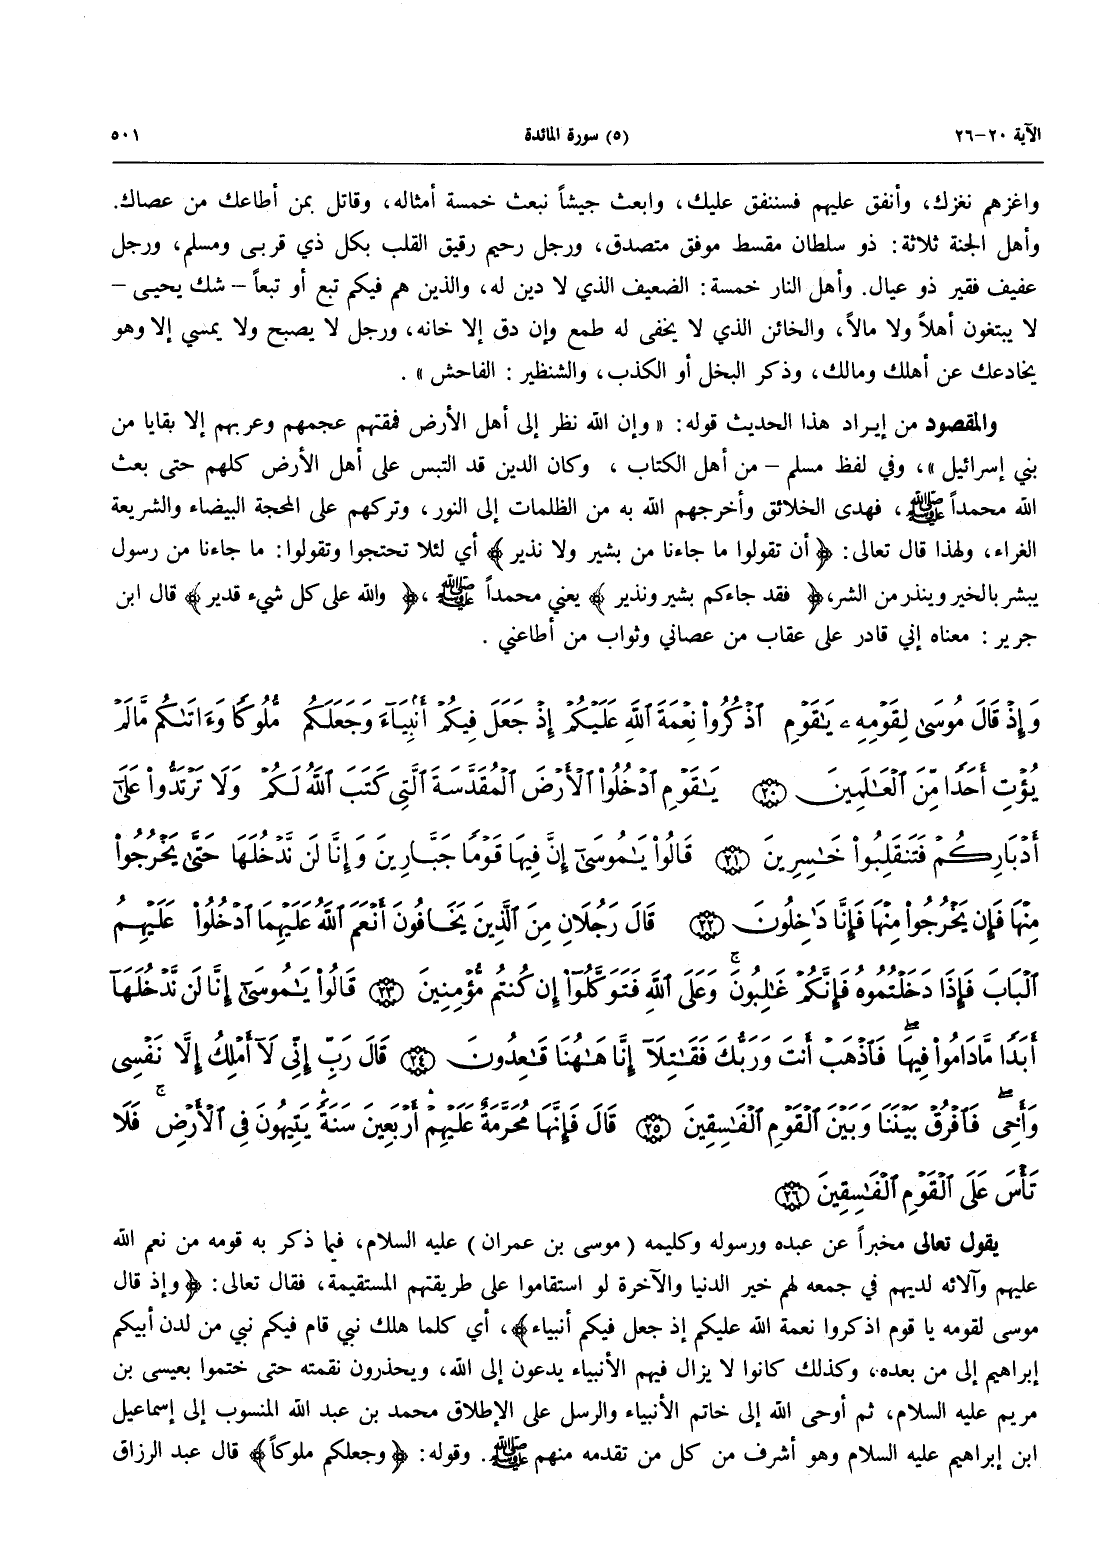 الآية ٢٠-٢٦ (٥) سورة المائدة ٥٠١
واغزهم نغزك، وأنفق عليهم فسننفق عليك، وابعث جيشاً نبعث خمسة أمثاله، وقاتل بمن أطاعك من عصاك.
وأهل الجنة ثلاثة: ذو سلطان مقسط موفق متصدق، ورجل رحيم رقيق القلب بكل ذي قربى ومسلم، ورجل
عفيف فقير ذو عيال. وأهل النار خمسة: الضعيف الذي لا دين له، والذين هم فيكم تبع أو تبعاً – شك يحيى –
لا يبتغون أهلاً ولا مالاً، والخائن الذي لا يخفى له طمع وإن دق إلا خانه، ورجل لا يصبح ولا يمسي إلا وهو
يخادعك عن أهلك ومالك، وذكر البخل أو الكذب، والشنظير: الفاحش» .
والمقصود من إيراد هذا الحديث قوله: «وإن الله نظر إلى أهل الأرض فمقتهم عجمهم وعربهم إلا بقايا من
بني إسرائيل»، وفي لفظ مسلم – من أهل الكتاب ، وكان الدين قد التبس على أهل الأرض كلهم حتى بعث
الله محمداً ﷺ، فهدى الخلائق وأخرجهم الله به من الظلمات إلى النور، وتركهم على المحجة البيضاء والشريعة
الغراء، ولهذا قال تعالى: ﴿أن تقولوا ما جاءنا من بشير ولا نذير﴾ أي لئلا تحتجوا وتقولوا: ما جاءنا من رسول
يبشر بالخير وينذر من الشر، ﴿فقد جاءكم بشير ونذير﴾ يعني محمداً ﷺ، ﴿والله على كل شيء قدير﴾ قال ابن
جرير: معناه إني قادر على عقاب من عصاني وثواب من أطاعني .
وَإِذْ قَالَ مُوسَىٰ لِقَوْمِهِۦ يَـٰقَوْمِ ٱذْكُرُوا۟ نِعْمَةَ ٱللَّهِ عَلَيْكُمْ إِذْ جَعَلَ فِيكُمْ أَنۢبِيَآءَ وَجَعَلَكُم مُّلُوكًا وَءَاتَىٰكُم مَّا لَمْ
يُؤْتِ أَحَدًا مِّنَ ٱلْعَـٰلَمِينَ ﴿٢٠﴾ يَـٰقَوْمِ ٱدْخُلُوا۟ ٱلْأَرْضَ ٱلْمُقَدَّسَةَ ٱلَّتِى كَتَبَ ٱللَّهُ لَكُمْ وَلَا تَرْتَدُّوا۟ عَلَىٰٓ
أَدْبَارِكُمْ فَتَنقَلِبُوا۟ خَـٰسِرِينَ ﴿٢١﴾ قَالُوا۟ يَـٰمُوسَىٰٓ إِنَّ فِيهَا قَوْمًا جَبَّارِينَ وَإِنَّا لَن نَّدْخُلَهَا حَتَّىٰ يَخْرُجُوا۟
مِنْهَا فَإِن يَخْرُجُوا۟ مِنْهَا فَإِنَّا دَٰخِلُونَ ﴿٢٢﴾ قَالَ رَجُلَانِ مِنَ ٱلَّذِينَ يَخَافُونَ أَنْعَمَ ٱللَّهُ عَلَيْهِمَا ٱدْخُلُوا۟ عَلَيْهِمُ
ٱلْبَابَ فَإِذَا دَخَلْتُمُوهُ فَإِنَّكُمْ غَـٰلِبُونَ ۚ وَعَلَى ٱللَّهِ فَتَوَكَّلُوٓا۟ إِن كُنتُم مُّؤْمِنِينَ ﴿٢٣﴾ قَالُوا۟ يَـٰمُوسَىٰٓ إِنَّا لَن نَّدْخُلَهَآ
أَبَدًا مَّا دَامُوا۟ فِيهَا ۖ فَٱذْهَبْ أَنتَ وَرَبُّكَ فَقَـٰتِلَآ إِنَّا هَـٰهُنَا قَـٰعِدُونَ ﴿٢٤﴾ قَالَ رَبِّ إِنِّى لَآ أَمْلِكُ إِلَّا نَفْسِى
وَأَخِى ۖ فَٱفْرُقْ بَيْنَنَا وَبَيْنَ ٱلْقَوْمِ ٱلْفَـٰسِقِينَ ﴿٢٥﴾ قَالَ فَإِنَّهَا مُحَرَّمَةٌ عَلَيْهِمْ ۛ أَرْبَعِينَ سَنَةً ۛ يَتِيهُونَ فِى ٱلْأَرْضِ ۚ فَلَا
تَأْسَ عَلَى ٱلْقَوْمِ ٱلْفَـٰسِقِينَ ﴿٢٦﴾
يقول تعالى مخبراً عن عبده ورسوله وكليمه (موسى بن عمران) عليه السلام، فيما ذكر به قومه من نعم الله
عليهم وآلائه لديهم في جمعه لهم خير الدنيا والآخرة لو استقاموا على طريقتهم المستقيمة، فقال تعالى: ﴿وإذ قال
موسى لقومه يا قوم اذكروا نعمة الله عليكم إذ جعل فيكم أنبياء﴾، أي كلما هلك نبي قام فيكم نبي من لدن أبيكم
إبراهيم إلى من بعده، وكذلك كانوا لا يزال فيهم الأنبياء يدعون إلى الله، ويحذرون نقمته حتى ختموا بعيسى بن
مريم عليه السلام، ثم أوحى الله إلى خاتم الأنبياء والرسل على الإطلاق محمد بن عبد الله المنسوب إلى إسماعيل
ابن إبراهيم عليه السلام وهو أشرف من كل من تقدمه منهم ﷺ. وقوله: ﴿وجعلكم ملوكاً﴾ قال عبد الرزاق